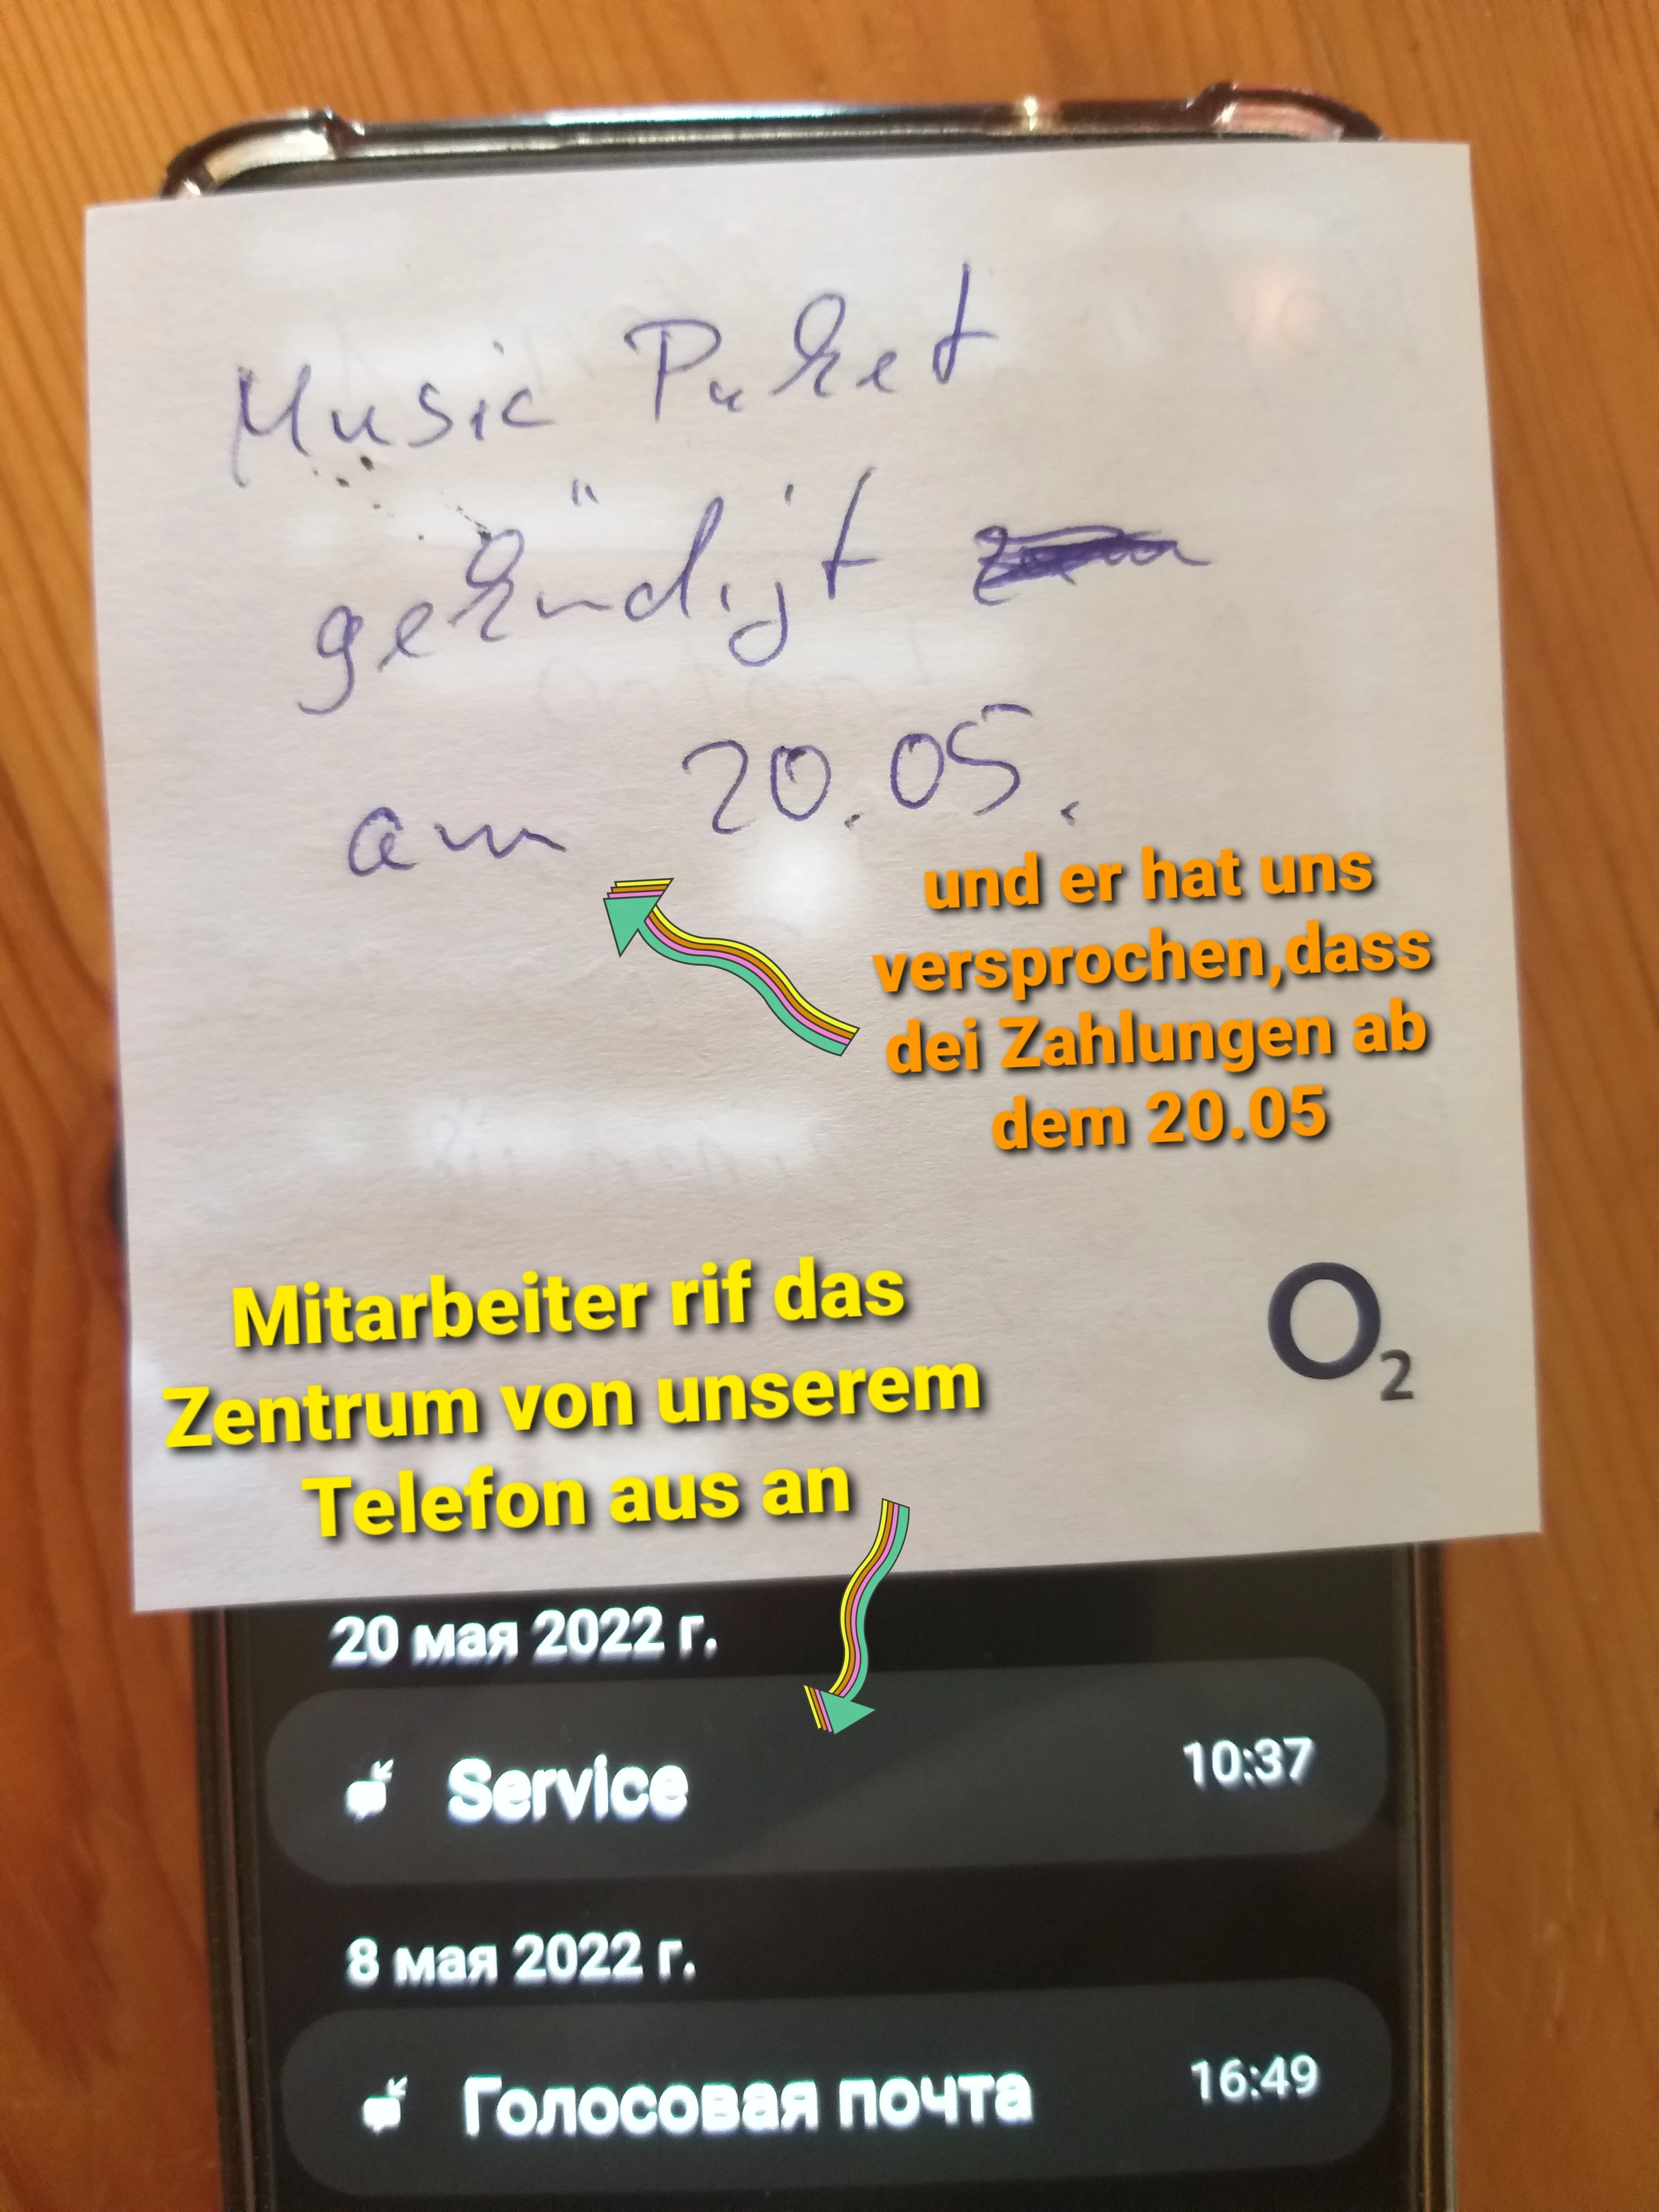 Music Paket
gekündigt
am 20.05.
und er hat uns
versprochen,dass
dei Zahlungen ab
dem 20.05
O2
Mitarbeiter rif das
Zentrum von unserem
Telefon aus an
20 мая 2022 г.
Service 10:37
8 мая 2022 г.
Голосовая почта 16:49